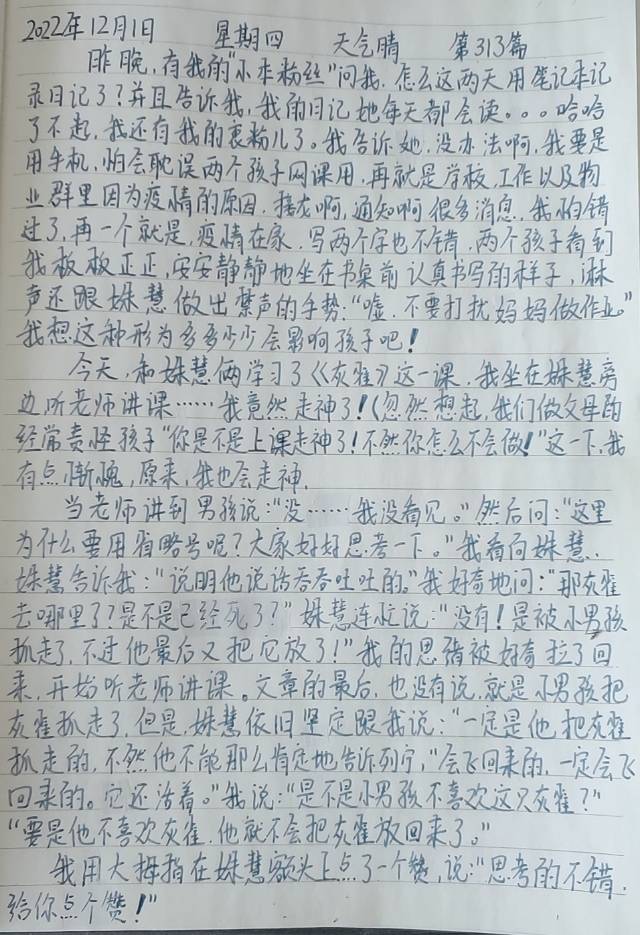 2022年12月1日 星期四 天气晴 第313篇
昨晚,有我的"小本粉丝"问我,怎么这两天用笔记本记
录日记了?并且告诉我,我的日记她每天都会读。。。哈哈
了不起,我还有我的裹粉儿了。我告诉她,没办法啊,我要是
用手机,怕会耽误两个孩子网课用,再就是学校,工作以及物
业群里因为疫情的原因,接龙啊,通知啊很多消息,我怕错
过了,再一个就是,疫情在家,写两个字也不错,两个孩子看到
我板板正正,安安静静地坐在书桌前认真书写的样子,淋
声还跟姝慧做出禁声的手势:"嘘,不要打扰妈妈做作业。"
我想这种形为多多少少会影响孩子吧!
今天,和姝慧俩学习了《灰雀》这一课,我坐在姝慧旁
边听老师讲课……我竟然走神了!(忽然想起,我们做父母的
经常责怪孩子"你是不是上课走神了!不然你怎么不会做!"这一下,我
有点惭愧,原来,我也会走神.
当老师讲到男孩说:"没……我没看见。"然后问:"这里
为什么要用省略号呢?大家好好思考一下。"我看向姝慧..
姝慧告诉我:"说明他说话吞吞吐吐的。"我好奇地问:"那灰雀
去哪里了?是不是已经死了?"姝慧连忙说:"没有!是被小男孩
抓走了,不过他最后又把它放了!"我的思绪被好奇拉了回
来,开始听老师讲课。文章的最后,也没有说,就是小男孩把
灰雀抓走了,但是,姝慧依旧坚定跟我说:"一定是他把灰雀
抓走的,不然他不能那么肯定地告诉列宁,"会飞回来的,一定会飞
回来的。它还活着。"我说:"是不是小男孩不喜欢这只灰雀?"
"要是他不喜欢灰雀,他就不会把灰雀放回来了。"
我用大拇指在姝慧额头上点了一个赞,说:"思考的不错,
给你点个赞!"